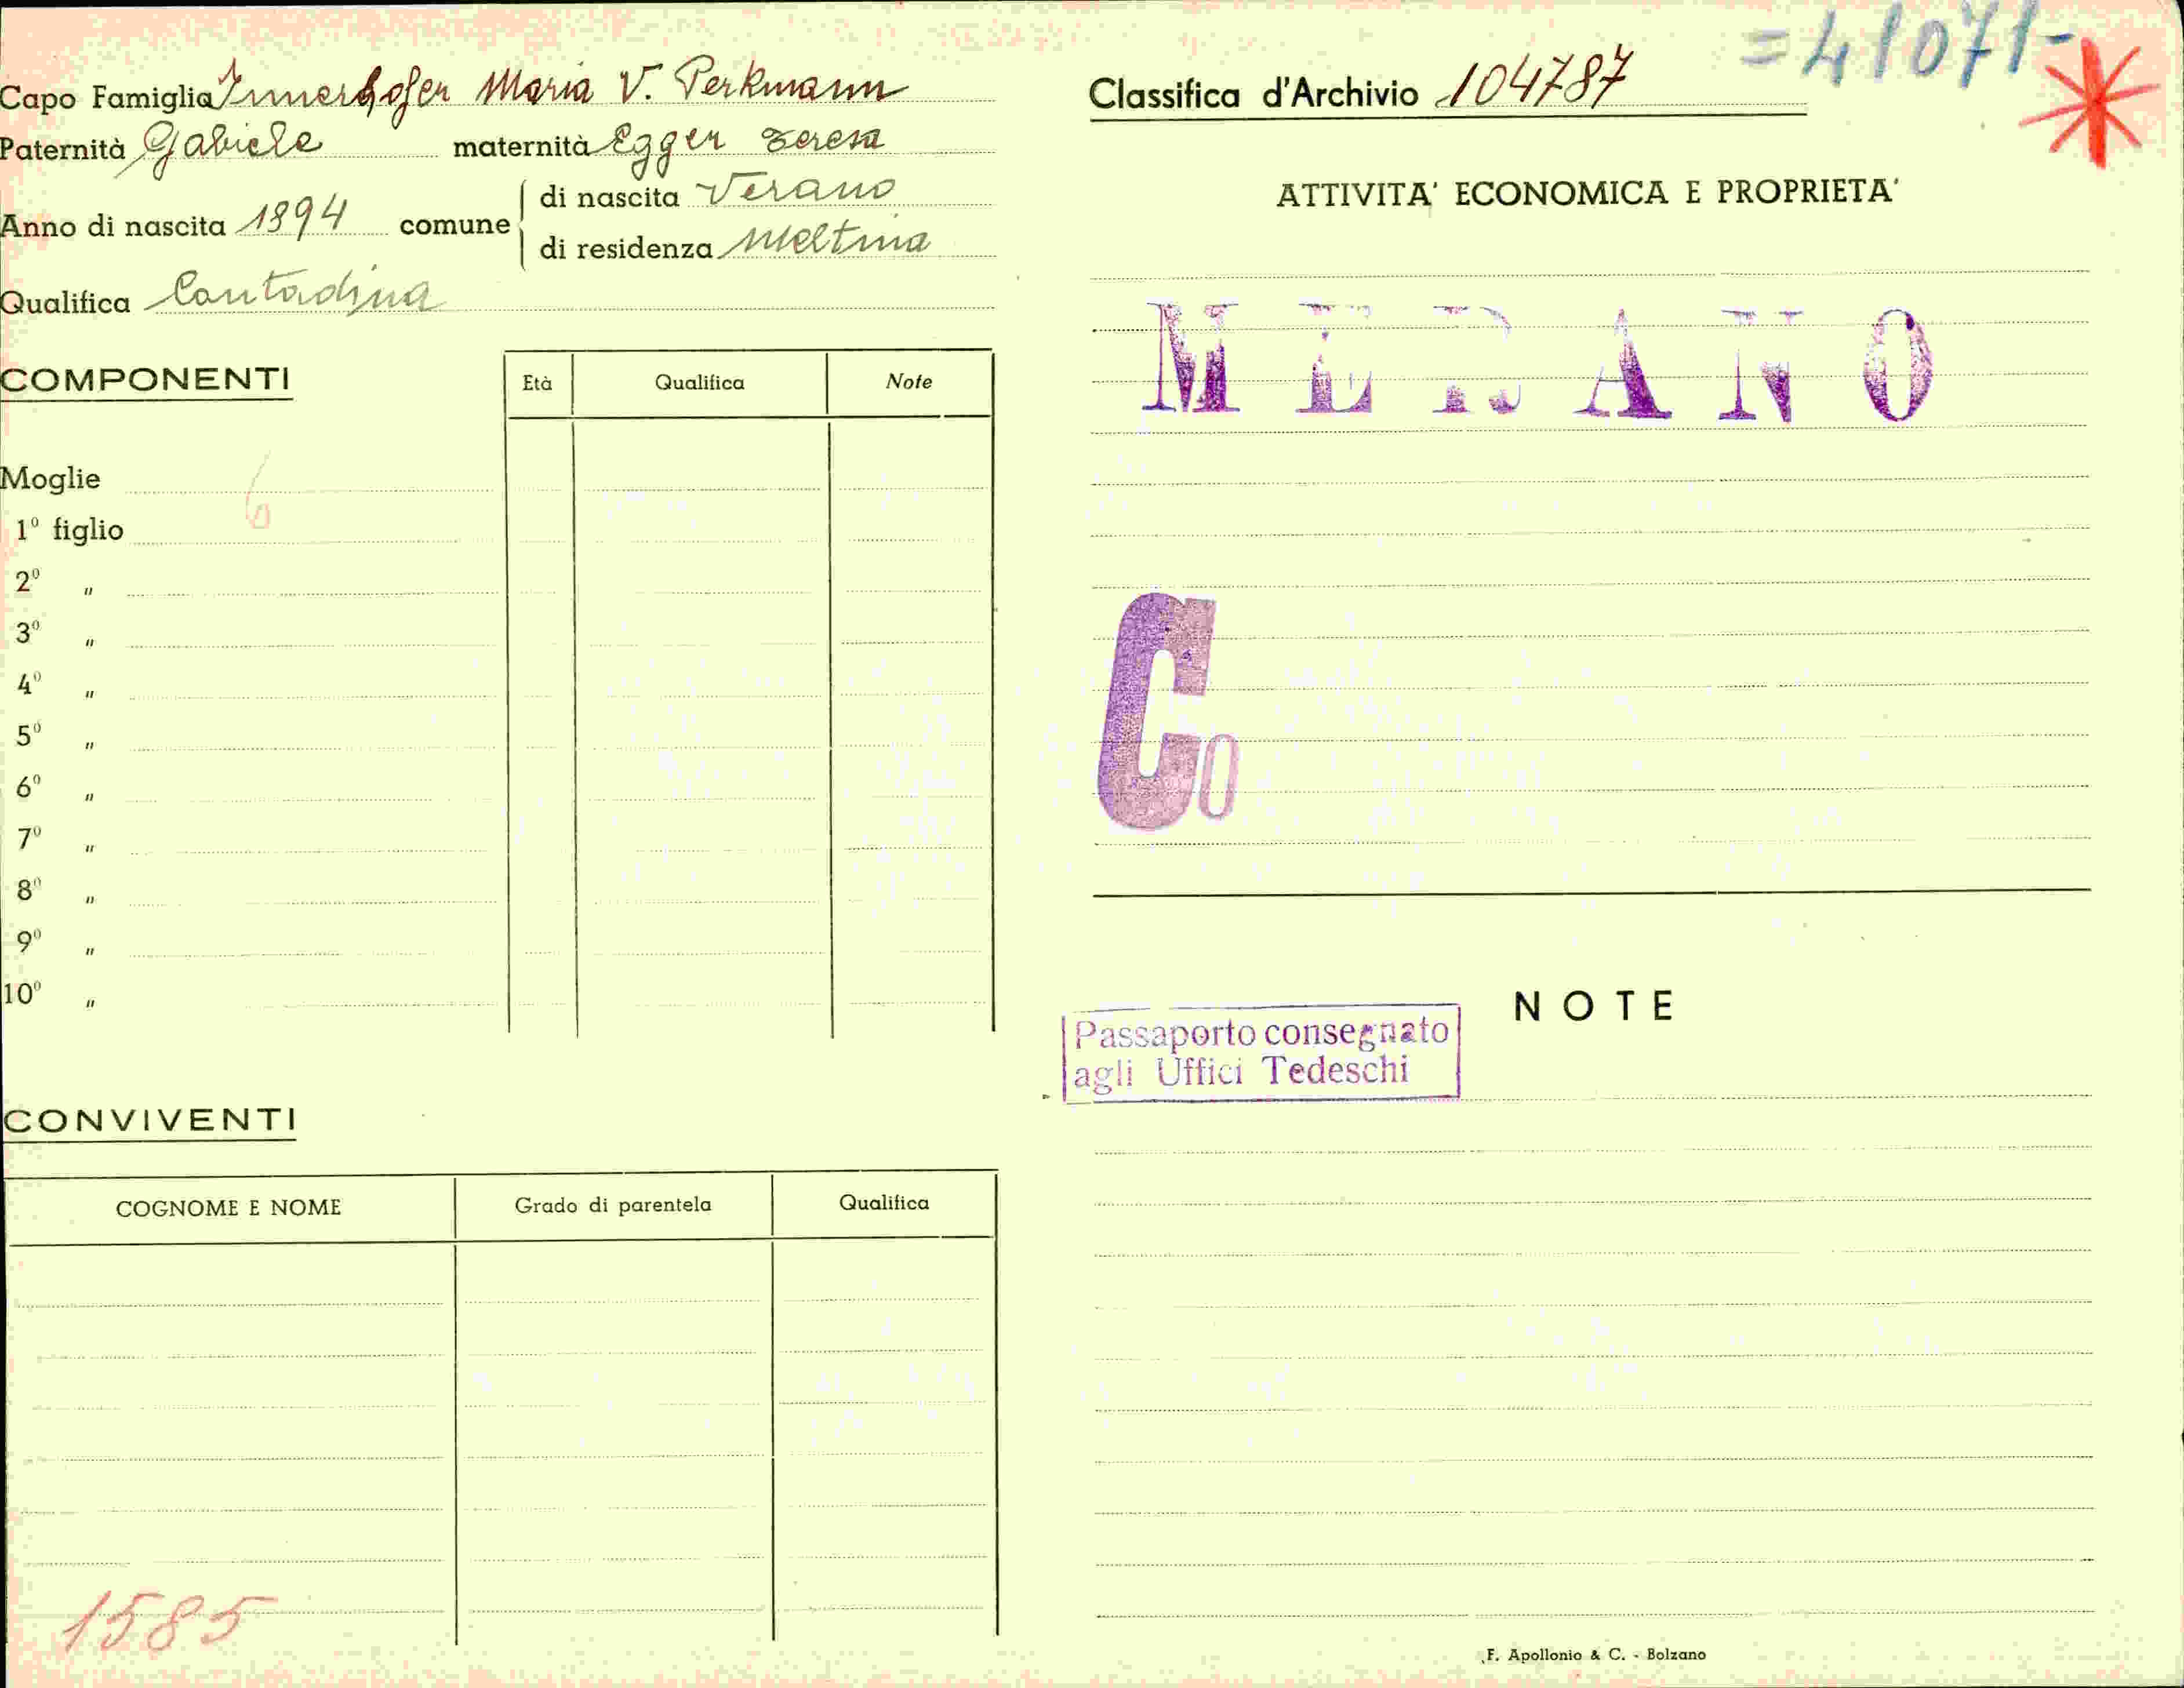 Capo Famiglia Innerhofer Maria V. Perkmann
Paternità Gabiele maternità Egger Teresa
Anno di nascita 1894 comune di nascita Verano
di residenza Meltina
Qualifica Contadina
COMPONENTI
Età Qualifica Note
Moglie
6
1º figlio
2º "
3º "
4º "
5º "
6º "
7º "
8º "
9º "
10º "
CONVIVENTI
COGNOME E NOME Grado di parentela Qualifica
1585
=41071-
Classifica d'Archivio 104787
ATTIVITA' ECONOMICA E PROPRIETA'
MERANO
Co
NOTE
Passaporto consegnato
agli Uffici Tedeschi
F. Apollonio & C. - Bolzano